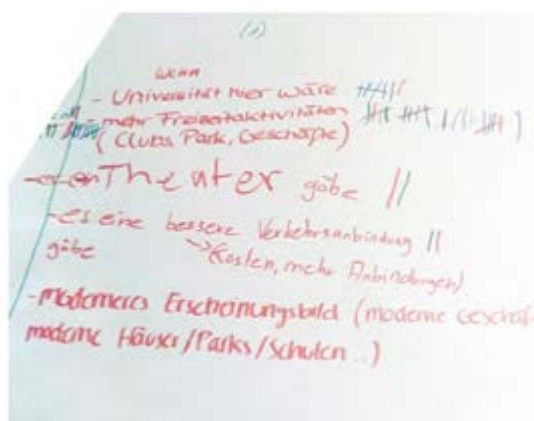 (1)
wenn
- Universität hier wäre
- mehr Freizeitaktivitäten
(Clubs Park, Geschäfte)
Theater gäbe
- es eine bessere Verkehrsanbindung
gäbe
Kosten, mehr Anbindungen)
- moderneres Erscheinungsbild (moderne Geschäf
moderne Häuser/Parks/Schulen ...)